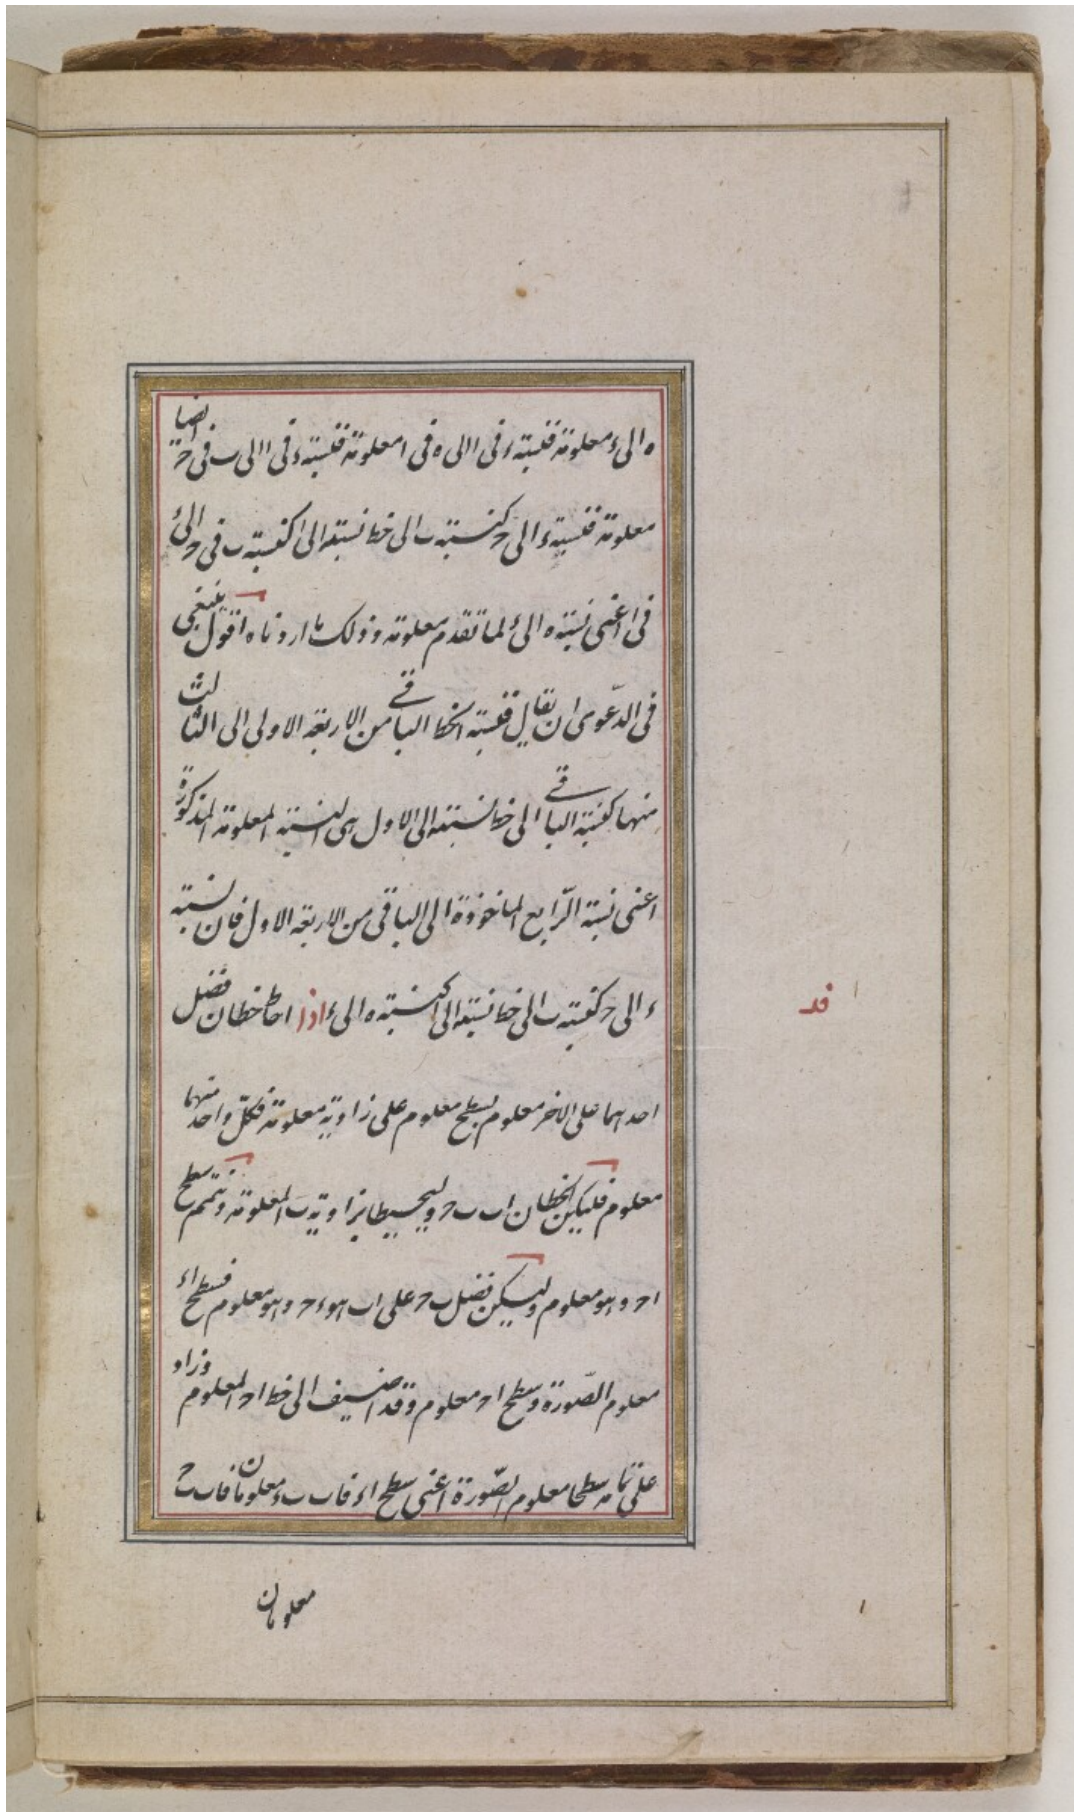 ه الى ء معلومة فنسبة ء فى ا الى ه فى ا معلومة فنسبة ء فى ا الى ب فى ح ايضا
معلومة فنسبة ء الى ح كنسبة ب الى خط نسبته الى ا كنسبة ب فى ح الى ء
فى ا اعنى نسبة ه الى ء لما تقدم معلومة وذلك ما اردناه اقول ينبغى
فى الدّعوى ان يقال فنسبة الخط الباقى من الاربعة الاولى الى الثالث
منها كنسبة الباقى الى خط نسبته الى الاول هى النسبة المعلومة المذكورة
اعنى نسبة الرّابع الماخوذة الى الباقى من الاربعة الاول فان نسبة
ء الى ح كنسبة ب الى خط نسبته الى ا كنسبة ه الى ء اذا احاط خطان فضل
فد
احدهما على الاخر معلوم بسطح معلوم على زاوية معلومة فكلّ واحد منهما
معلوم فليكن الخطان اب ب ح وليحيطا بزاوية ب المعلومة ونتمم سطح
ا ح وهو معلوم وليكن فضل ب ح على اب هو ء ح وهو معلوم فسطح اء
معلوم الصّورة وسطح ا ح معلوم وقد اضيف الى خط ا ح المعلوم وزاد
على تمامه سطحا معلوم الصّورة اعنى سطح اء فاب ب ء معلومان فاب ب ح
معلومان